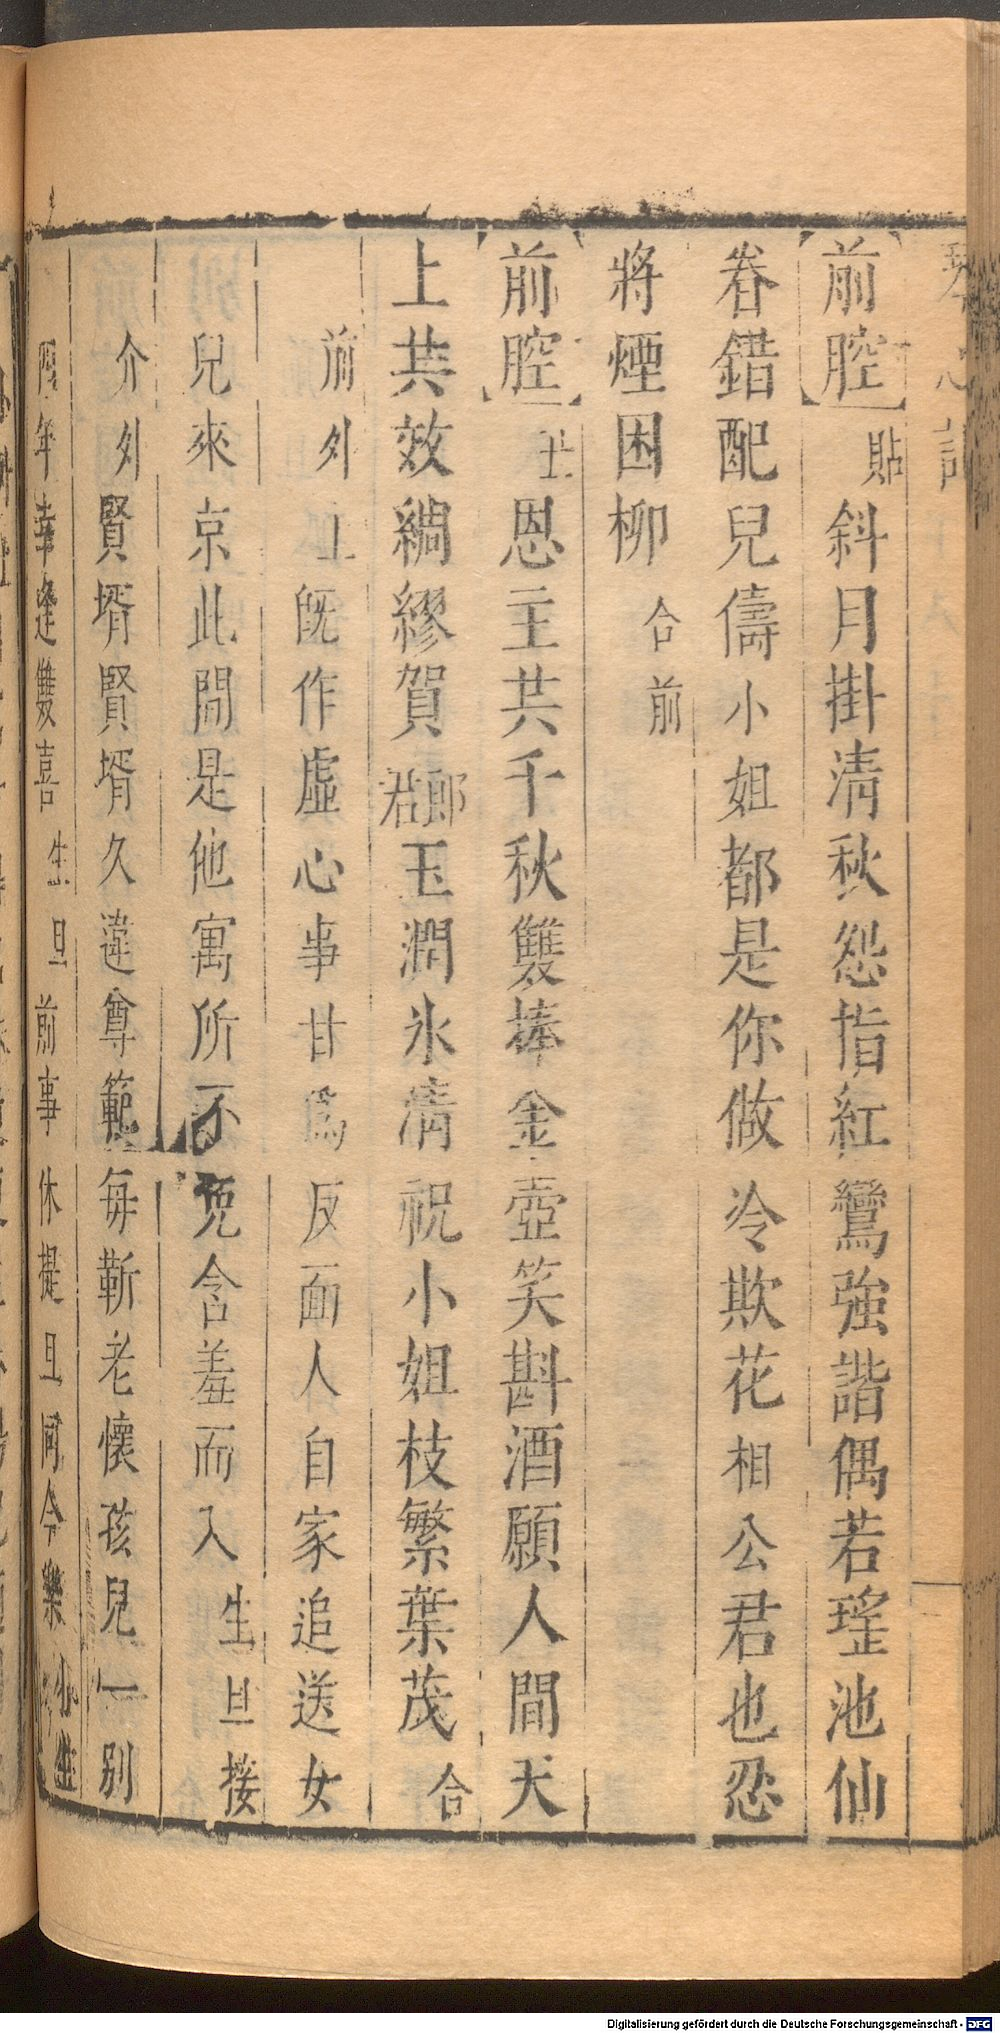 琴心記
前腔 貼 斜月掛清秋怨指紅鸞強諧偶若瑤池仙
眷錯配兒儔小姐都是你做冷欺花相公君也忍
將煙困柳 合前
前腔 丑 恩主共千秋雙捧金壺笑斟酒願人間天
上共效綢繆賀郎君玉潤氷清祝小姐枝繁葉茂 合
前 外上 旣作虛心事甘爲反面人自家追送女
兒來京此間是他寓所不免含羞而入 生旦接
介外 賢壻賢壻久違尊範每靳老懷孩兒一別
四年幸逢雙喜 生旦 前事休提且同今樂 小生
Digitalisierung gefördert durch die Deutsche Forschungsgemeinschaft - DFG